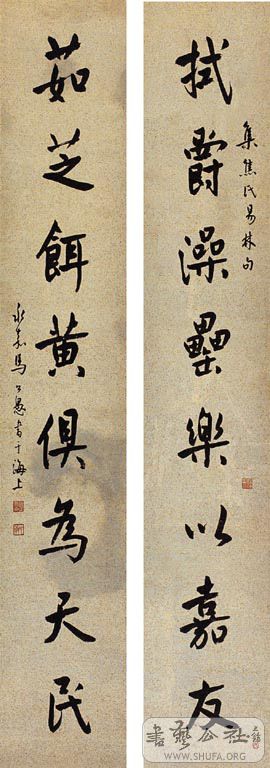 拭爵澡罍樂以嘉友
集焦氏易林句
茹芝餌黃俱為天民
永嘉馬公愚書于海上
書藝公社
WWW.SHUFA.ORG